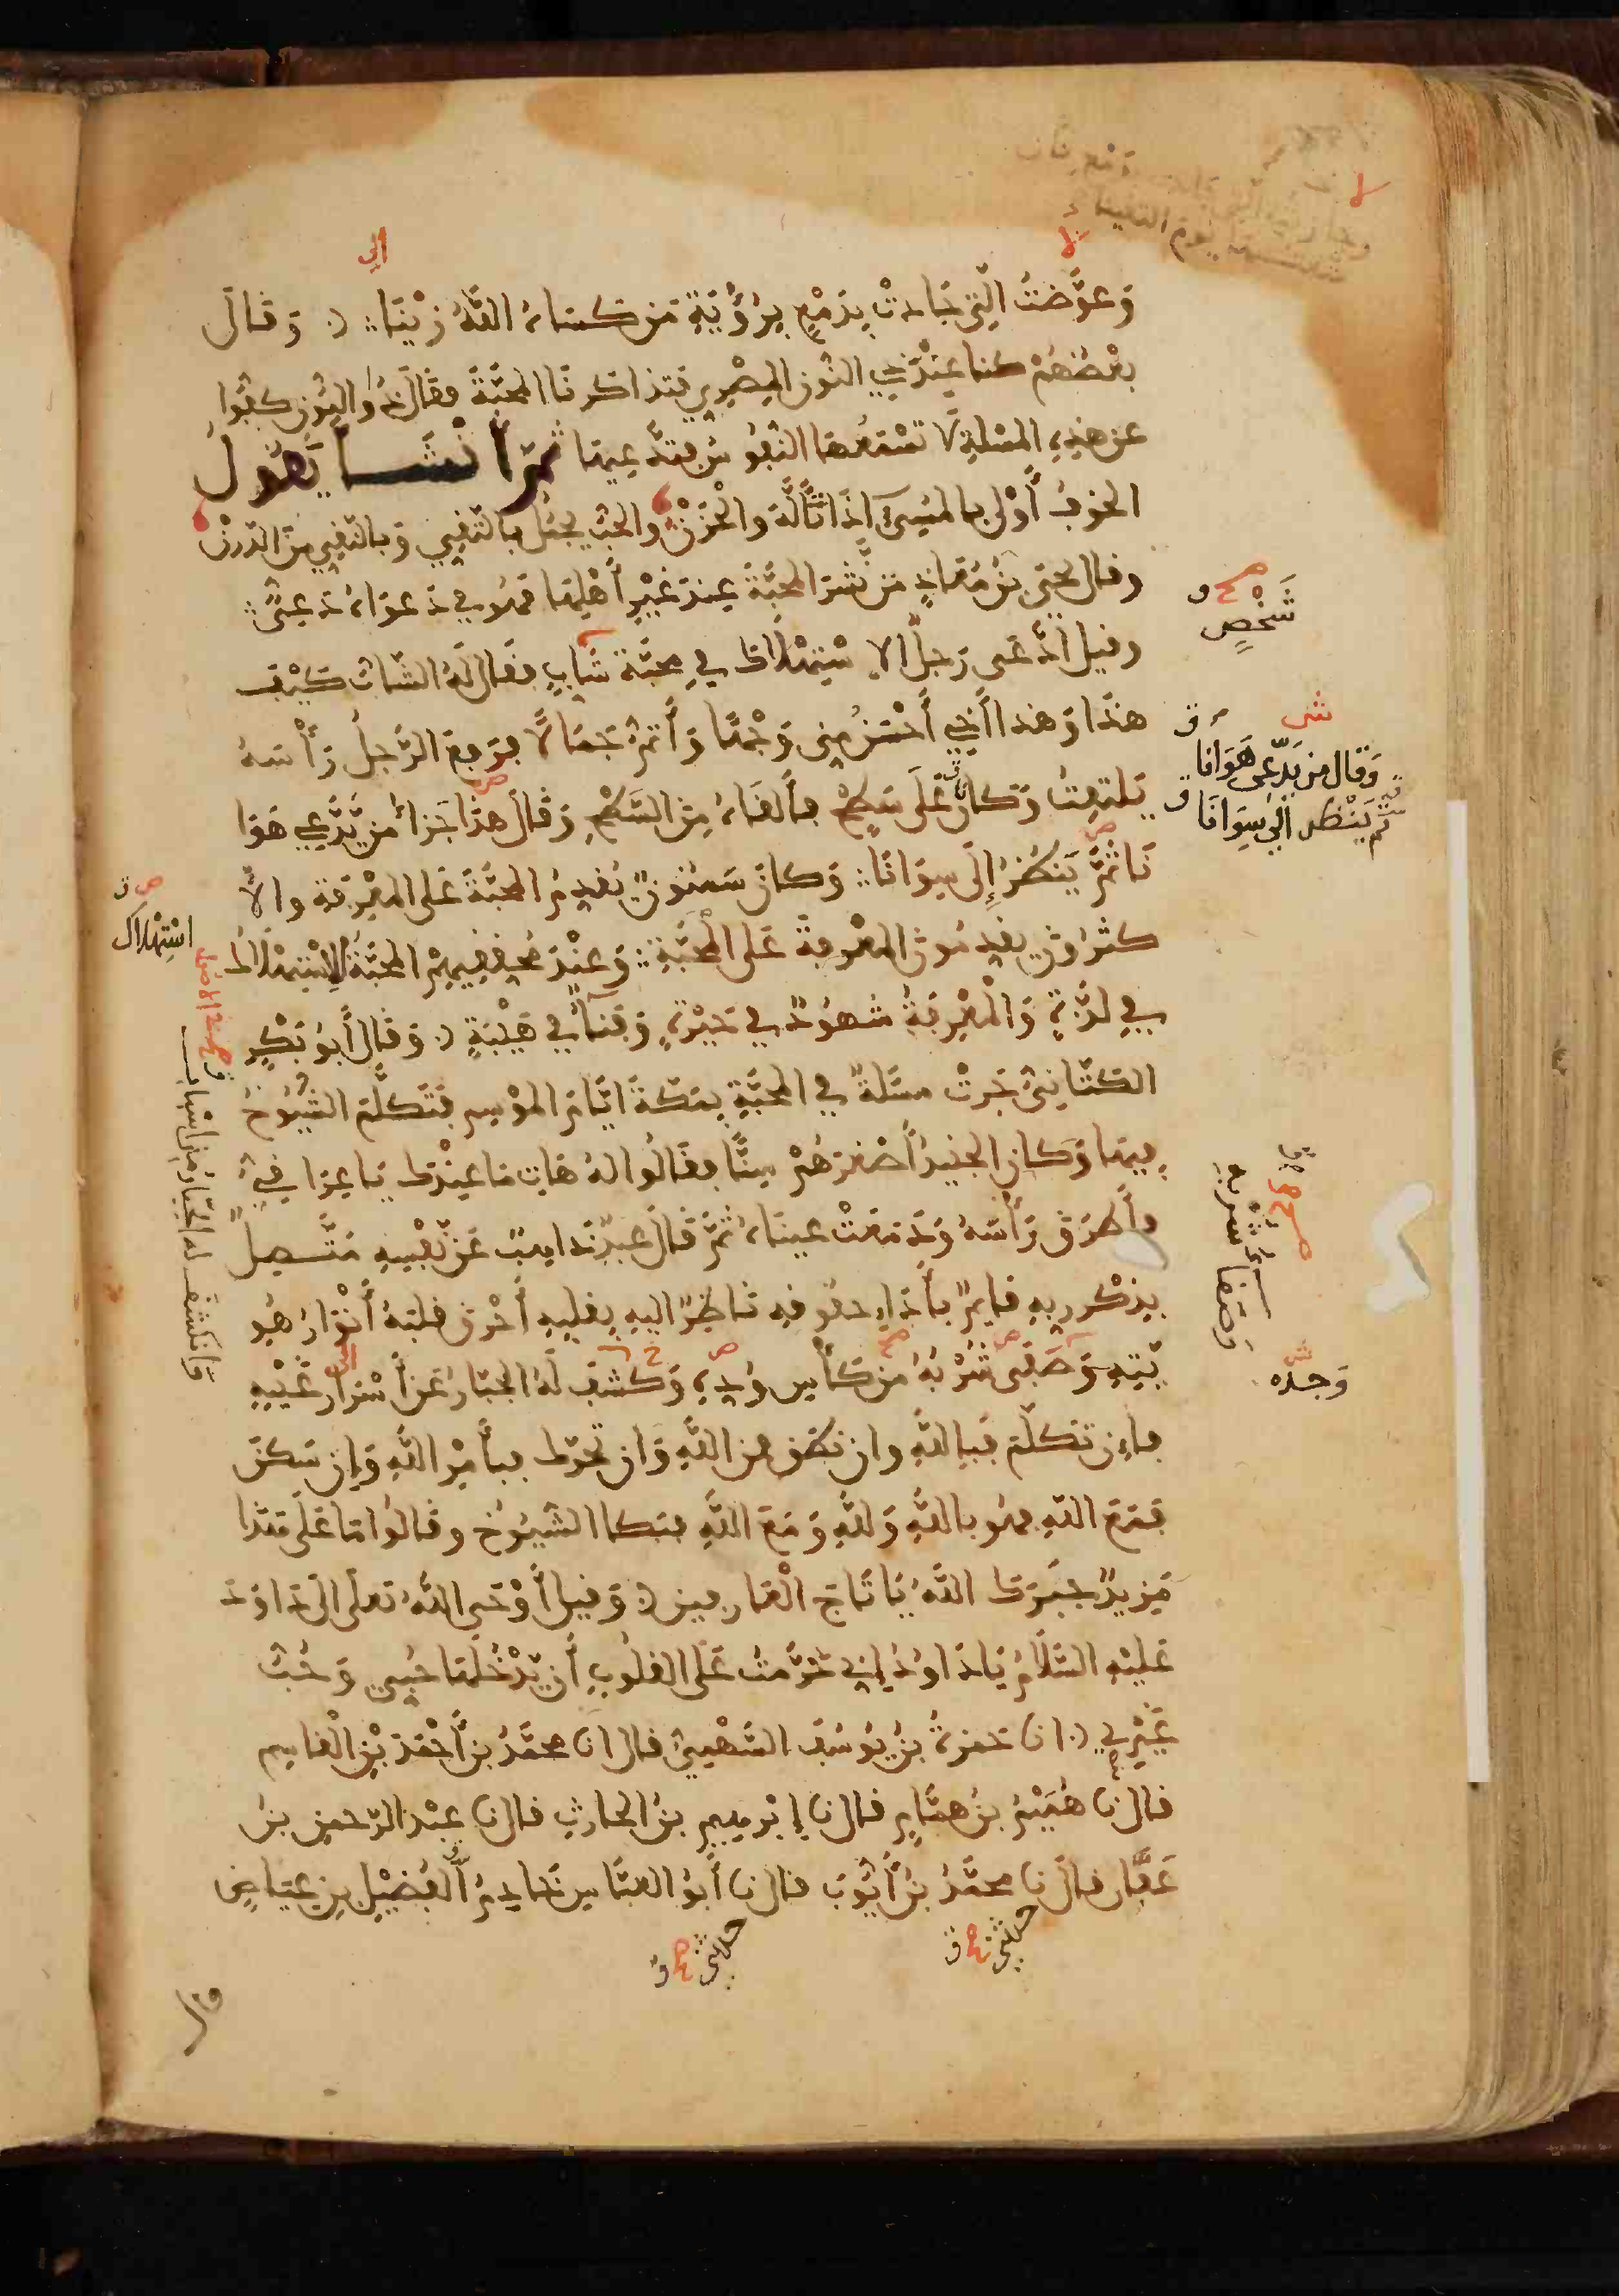 وَعوَّضتُ الَّتِي جَادتْ بِدَمْعٍ بِرُؤْيَةِ مَن كسَاهُ اللَّهُ زيْنَا وَقَالَ
بعْضُهُمْ كنا عِنْدَ ذِي النُّونِ المِصْرِي فتذاكرنَا المحبَّةَ فقالَ ذُو النُّون كفُّوا
عن هذِهِ المسْلةِ لَا تَسْمَعُهَا النُّفُوسُ فَتَدَّعِيهَا ثُمَّ أَنْشَا يَقُولُ
الخوفُ أَوْلَى بالمُسِيءِ إذَا تَأَلَّهَ وَالْحَزَنْ وَالحُبُّ يَجمُلُ بالتَّقِيِّ وَبالنَّقِيِّ مِنَ الدَّرَنْ
وقال يحيَى بنُ مُعَاذٍ مَن نَّشَرَ المحَبَّةَ عِندَ غَيْرِ أَهْلِهَا فَهُو فِي دَعوَاهُ دَعِيٌّ
وقيل ادَّعَى رَجلٌ الاِسْتِهْلَاكَ فِي محبَّةِ شَابٍ فقَال لَهُ الشَّابُّ كَيْفَ
هذَا وَهذا أَخِي أَحْسَنُ مِنِي وَجْهًا وَأَتَمُّ جَمَالًا فرَفعَ الرَّجلُ رَأْسَهُ
يَلتفِتُ وَكانَ عَلَى سَطْحٍ فألقَاهُ مِنَ السَّطْحِ وَقَالَ هذَا جَزَاءُ مَن يَدَّعِي هَوَا
نَا ثُمَّ يَنظُرُ إِلَى سِوَانَا وَكانَ سَمنُونٌ يُقدِمُ المحَبَّةَ عَلى المعْرِفَةِ والأَ
كثَرُونَ يقدِمُونَ المعْرِفةَ عَلى المَحَبَّةِ وَعِنْدَ مُحَقِّقِيهِمْ المحَبَّةُ الاِسْتِهْلَاكُ
فِي لَذَّةٍ وَالْمَعْرِفَةُ شُهُودٌ فِي حَيْرَةٍ وَفَنَاءٌ فِي هَيْبَةٍ وَقَالَ أَبُو بَكْرٍ
الكتَّانِيُّ جَرتْ مسْلَةٌ فِي المحَبَّةِ بِمَكَّةَ أيَّامَ المَوْسِمِ فَتَكلَّمَ الشُّيُوخُ
فِيهَا وَكانَ الجنَيدُ أَصْغَرَهُمْ سِنًّا فقَالُوا لهُ هَاتِ مَا عِنْدَكَ يَا عِرَاقِيُّ
فأَطرَقَ رَأْسَهُ وَدَمَعَتْ عينَاهُ ثُمَّ قَالَ عَبدٌ ذَاهِبٌ عَن نَّفْسِهِ مُتَّصِلٌ
بِذِكْرِ ربِهِ قايِمٌ بأَدَاءِ حقُوقِهِ نَاظِرٌ اليهِ بِقلبِهِ أَحْرَقَ قلبَهُ أَنْوَارُ هُوِ
يَّتِهِ وَصَفَى شُرْبُهُ مِن كَأْسِ وُدِهِ وَكشَفَ لَهُ الجبَّارُ عَن أَسْرَارِ غَيْبِهِ
فإِن تكلَّمَ فَبِاللَّهِ وان نطَقَ فمِن اللَّهِ وَان تَحرَّكَ فبأَمْرِ اللَّهِ وَإن سَكنَ
فَمَعَ اللَّهِ فهُو باللَّهِ وَللَّهِ وَمَعَ اللَّهِ فبكا الشيُوخُ وقالُوا مَا عَلَى هَذَا
مَزِيدٌ جبَرَكَ اللَّهُ يَا تَاجَ الْعَارِفِينَ وَقيلَ أَوْحَى اللَّهُ تعلَى الَى دَاوُدَ
عَليْهِ السَّلَامُ يَا دَاوُدُ إنِي حَرَّمتُ عَلَى القلُوبِ أَن يَدْخُلَهَا حُبِي وَحُبُّ
غَيْرِي انا حَمزةُ بنُ يُوسُفَ السَّهْمِيُّ قال انا محمَّدُ بنُ أَحْمَدَ بْنِ الْقَاسِمِ
قال نا هُمَيْمُ بنُ همَّامٍ قال نا إبْرَهِيمِ بنُ الحَارِثِ قال نا عبْدُ الرَّحمنِ بنُ
عَفَّار قال نا محمَّدُ بنُ أَيُّوبَ قال نا أَبُو العبَّاسِ خَادِمُ الفُضَيْلِ بنِ عِيَاضٍ
شَخْصٍ
وَقَال مَن يَدَّعِي هَوَانا
ثُمَّ يَنْظُر الَى سِوَانَا
اسْتِهْلَاكٌ
وَانكشَفَ له الجبّار مِن أَسْبَابِ
وَصَفَا شُرْبهُ
وَجده
حدثني
حدثني
قال